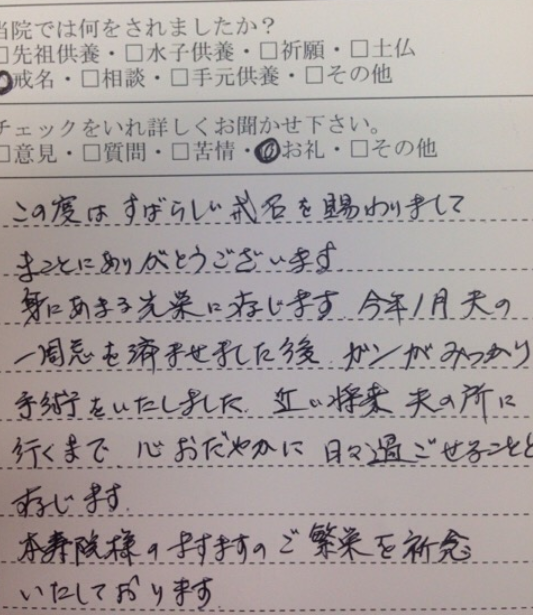 当院では何をされましたか？
□先祖供養・□水子供養・□祈願・□土仏
戒名・□相談・□手元供養・□その他
チェックをいれ詳しくお聞かせ下さい。
□意見・□質問・□苦情・お礼・□その他
この度は すばらしい戒名を賜わりまして
まことにありがとうございます
身にあまる光栄に存じます 今年1月 夫の
一周忌を済ませました後 ガンがみつかり
手術をいたしました 近い将来 夫の所に
行くまで 心おだやかに 日々過ごせることと
存じます
本寿院様のますますのご繁栄を祈念
いたしております